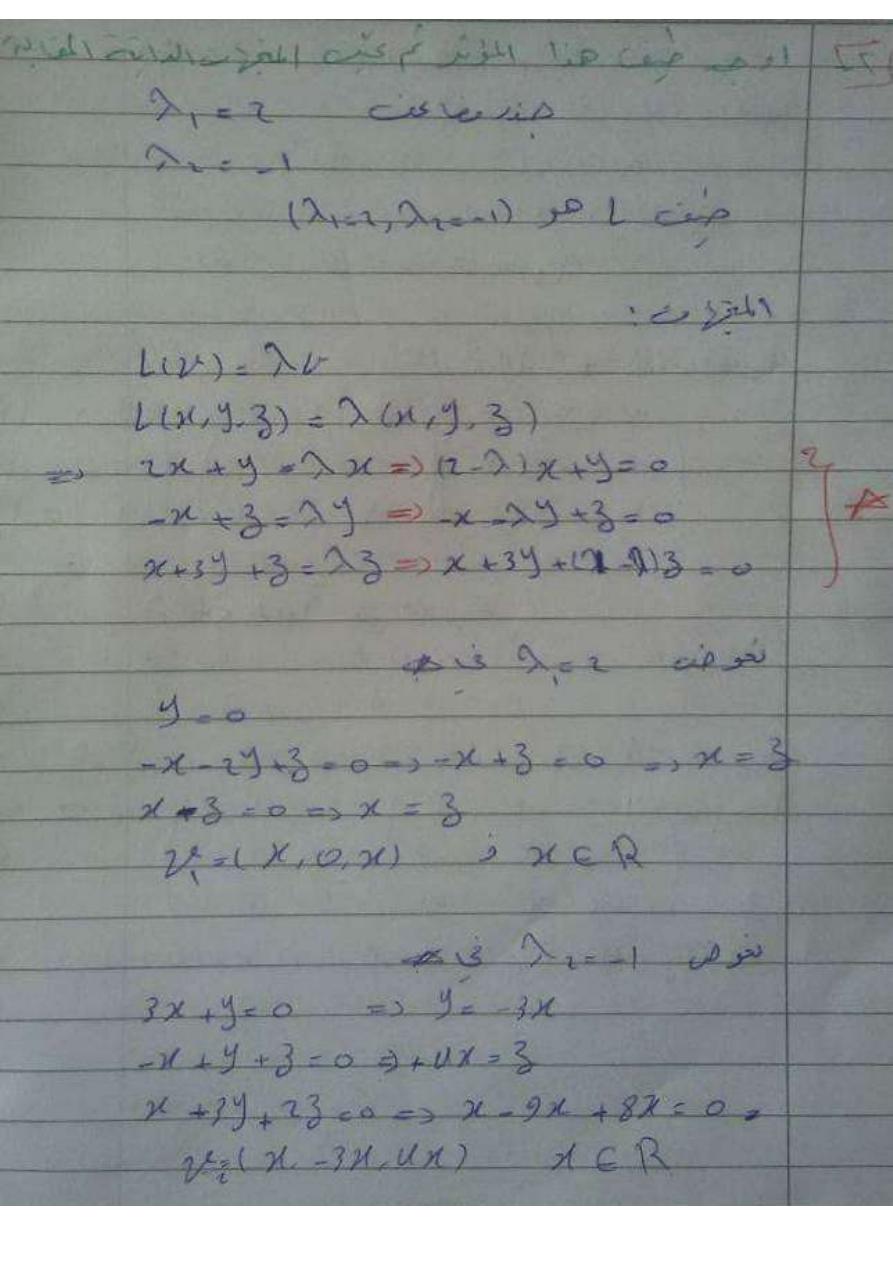 [٢] اوجد طيف هذا المؤثر ثم عين المتجهات الذاتية المقابلة
λ₁ = 2 جذر مضاعف
λ₂ = -1
طيف L هو (λ₁=2, λ₂=-1)
المتجهات:
L(v) = λv
L(x, y, z) = λ(x, y, z)
⇒ 2x + y = λx ⇒ (2-λ)x + y = 0
-x + z = λy ⇒ -x - λy + z = 0
x + 3y + z = λz ⇒ x + 3y + (1-λ)z = 0
نعوض λ₁ = 2 في *
y = 0
-x - 2y + z = 0 ⇒ -x + z = 0 ⇒ x = z
x - z = 0 ⇒ x = z
v₁ = (x, 0, x) ; x ∈ R
نعوض λ₂ = -1 في *
3x + y = 0 ⇒ y = -3x
-x + y + z = 0 ⇒ +4x = z
x + 3y + 2z = 0 ⇒ x - 9x + 8x = 0
v₂ = (x, -3x, 4x) x ∈ R